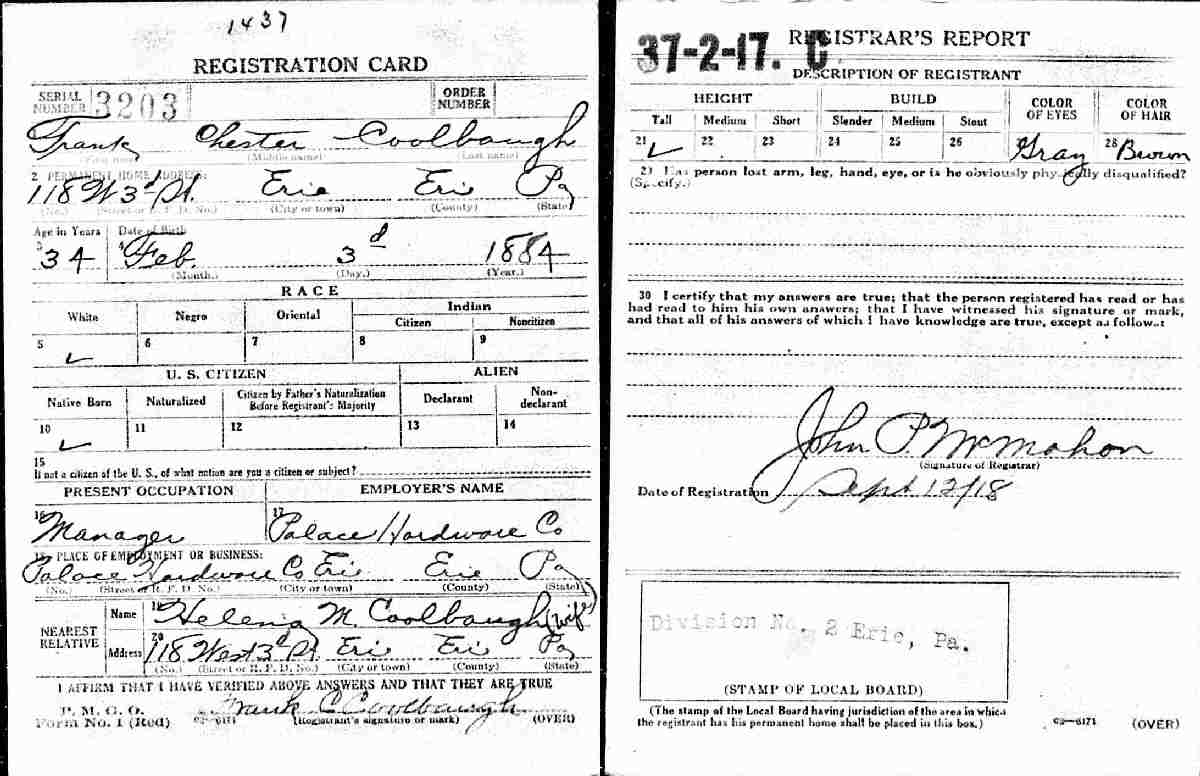 1437
REGISTRATION CARD
SERIAL NUMBER 3203 ORDER NUMBER
Frank Chester Coolbaugh
(First name) (Middle name) (Last name)
2 PERMANENT HOME ADDRESS:
118 W 3d St. Erie Erie Pa
(No.) (Street or R. F. D. No.) (City or town) (County) (State)
Age in Years Date of Birth
3 34 4 Feb. 3d 1884
(Month.) (Day.) (Year.)
RACE
White Negro Oriental Indian
Citizen Noncitizen
5 6 7 8 9
U. S. CITIZEN ALIEN
Native Born Naturalized Citizen by Father's Naturalization Before Registrant's Majority Declarant Non-declarant
10 11 12 13 14
15
If not a citizen of the U. S., of what nation are you a citizen or subject?
PRESENT OCCUPATION EMPLOYER'S NAME
16 Manager 17 Palace Hardware Co
18 PLACE OF EMPLOYMENT OR BUSINESS:
Palace Hardware Co Erie Erie Pa
(No.) (Street or R. F. D. No.) (City or town) (County) (State)
NEAREST RELATIVE Name 19 Helena M. Coolbaugh (wife)
Address 20 118 West 3d St. Erie Erie Pa
(No.) (Street or R. F. D. No.) (City or town) (County) (State)
I AFFIRM THAT I HAVE VERIFIED ABOVE ANSWERS AND THAT THEY ARE TRUE
P. M. G. O.
Form No. 1 (Red) 03—6171 Frank C Coolbaugh
(Registrant's signature or mark) (OVER)
37-2-17. C
REGISTRAR'S REPORT
DESCRIPTION OF REGISTRANT
HEIGHT BUILD COLOR OF EYES COLOR OF HAIR
Tall Medium Short Slender Medium Stout
21 22 23 24 25 26 Gray 28 Brown
29 Has person lost arm, leg, hand, eye, or is he obviously physically disqualified?
(Specify.)
30 I certify that my answers are true; that the person registered has read or has
had read to him his own answers; that I have witnessed his signature or mark,
and that all of his answers of which I have knowledge are true, except as follows:
John P. McMahon
(Signature of Registrar)
Date of Registration Sept 12/18
Division No. 2 Erie, Pa.
(STAMP OF LOCAL BOARD)
(The stamp of the Local Board having jurisdiction of the area in which
the registrant has his permanent home shall be placed in this box.)
03—6171 (OVER)